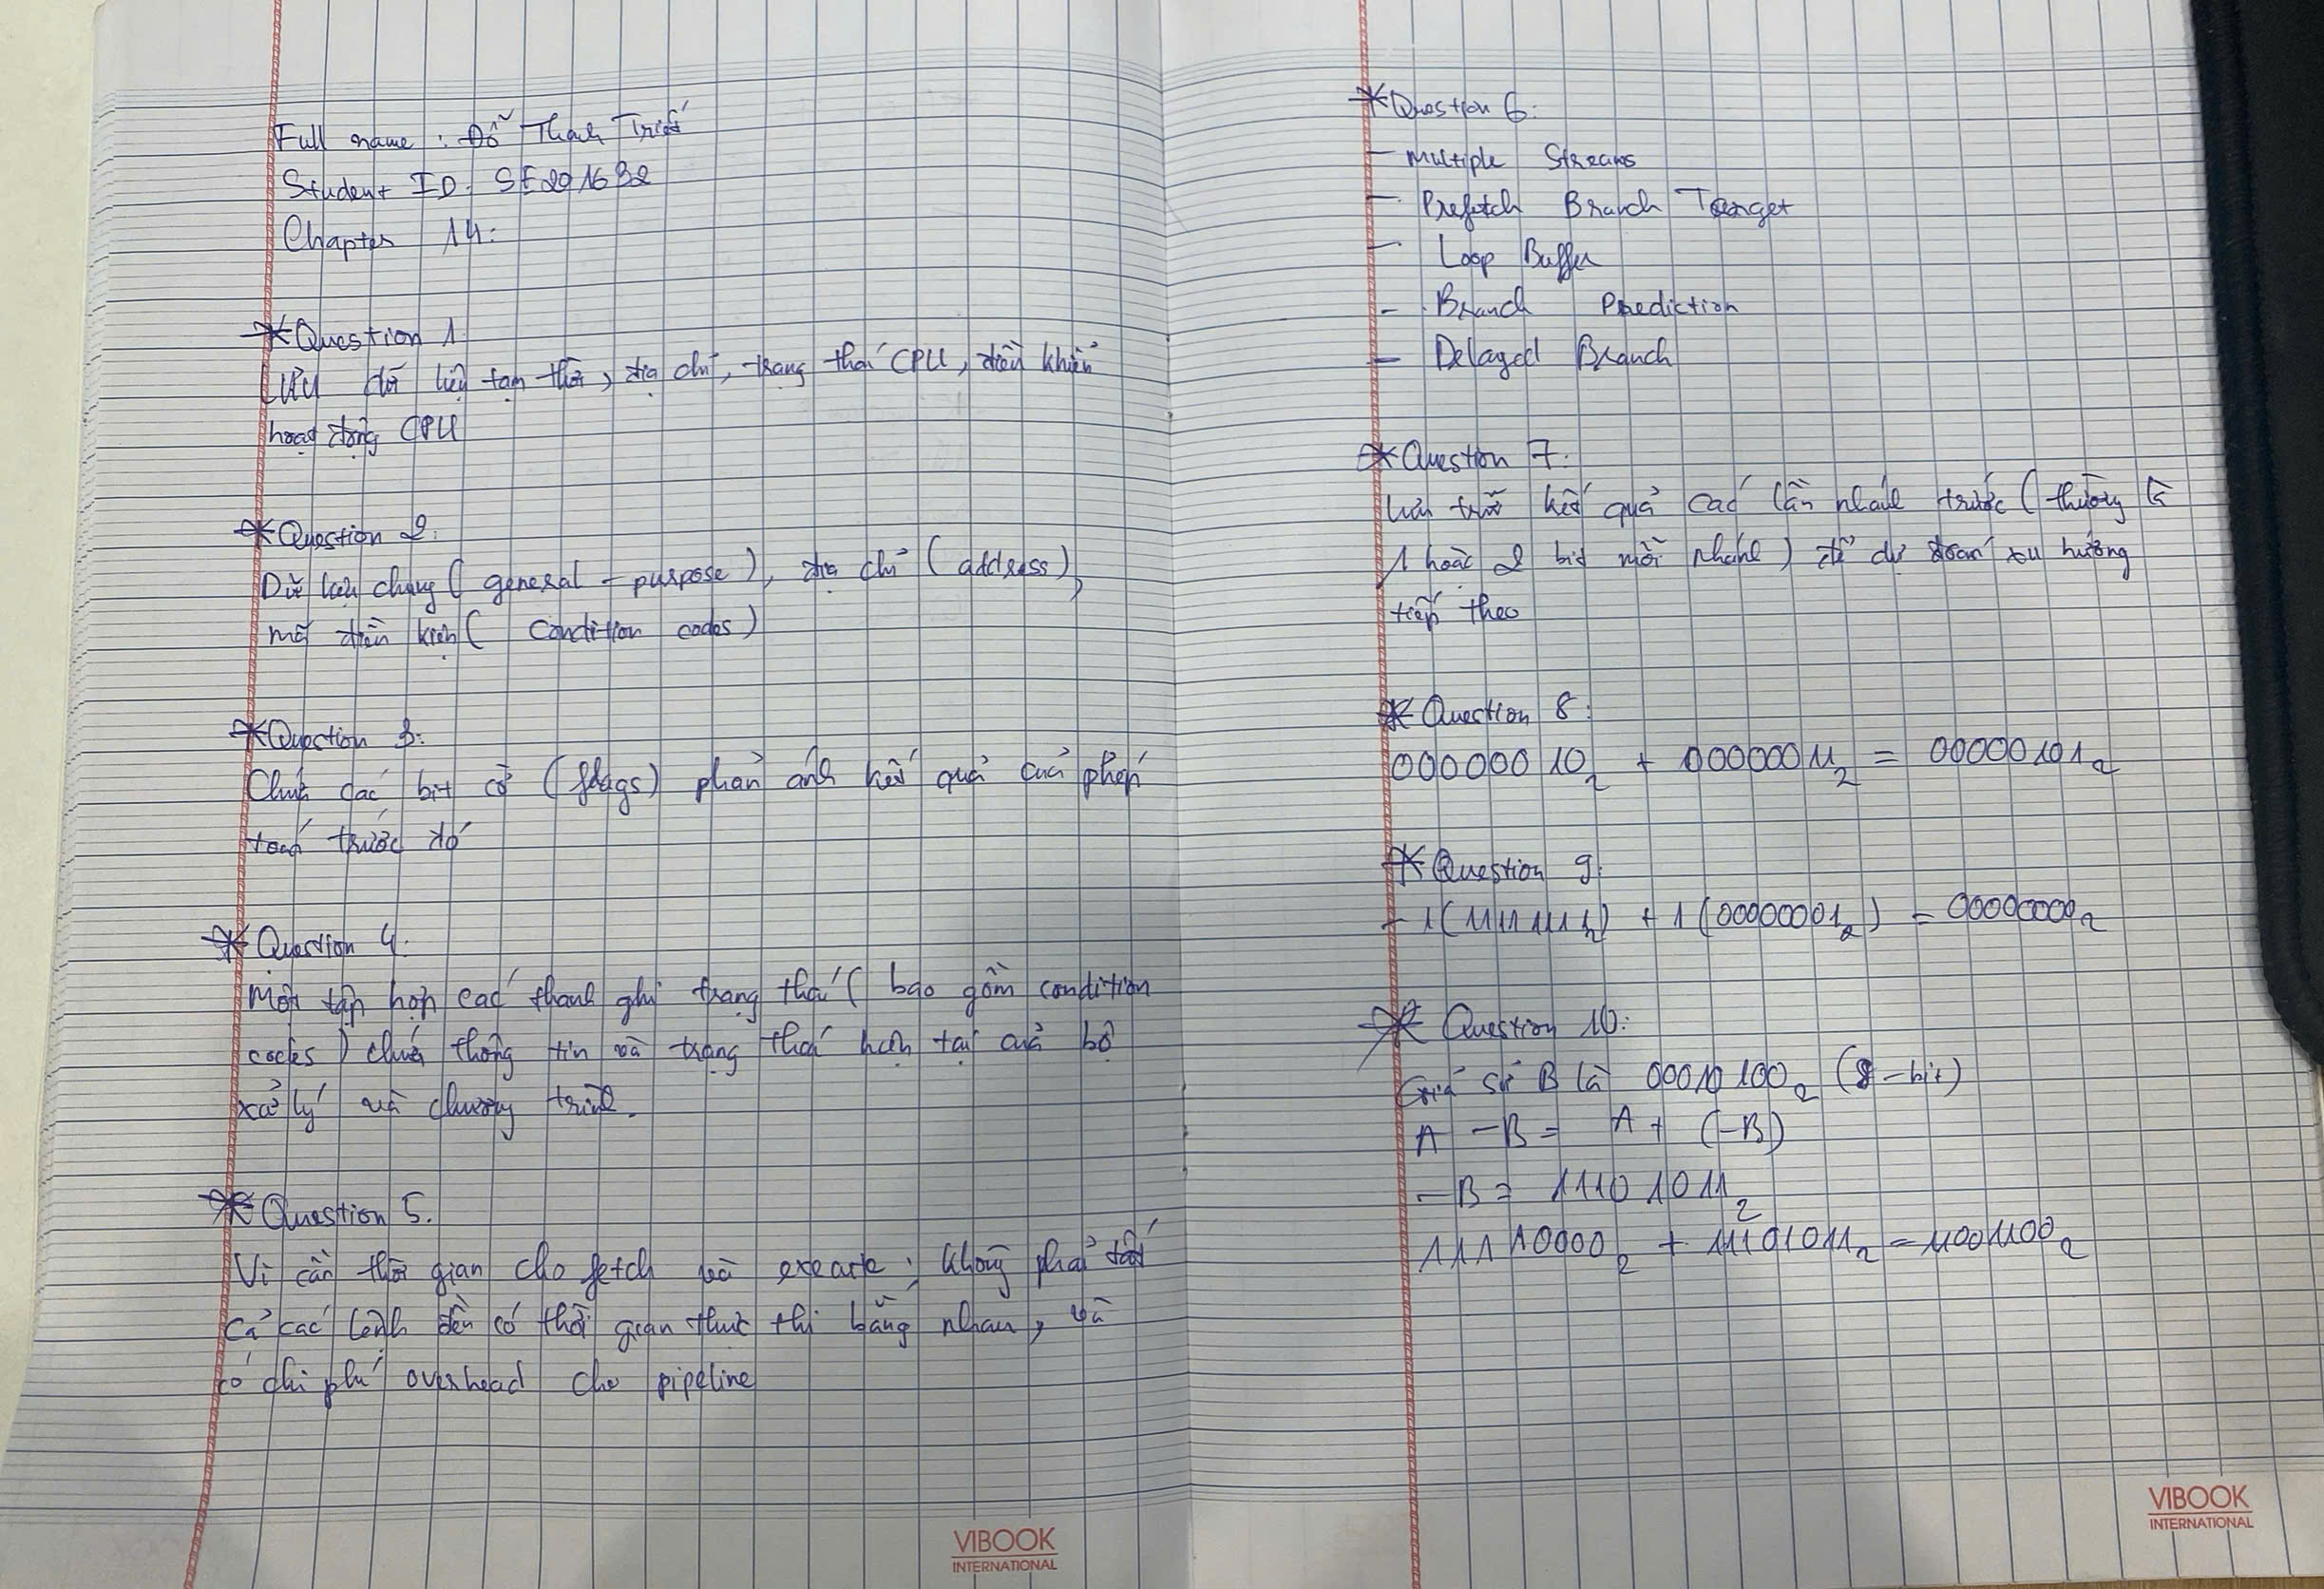 Full name : Đỗ Thanh Triết
Student ID: SE201632
Chapter 14:
*Question 1
Lưu dữ liệu tạm thời, địa chỉ, trạng thái CPU, điều khiển
hoạt động CPU
*Question 2:
Dữ liệu chung ( general - purpose ), địa chỉ ( address ),
mã điều kiện ( condition codes )
*Question 3:
Chứa các bit cờ ( flags ) phản ánh kết quả của phép
toán trước đó
*Question 4.
Một tập hợp các thanh ghi trạng thái ( bao gồm condition
codes ) chứa thông tin về trạng thái hiện tại của bộ
xử lý và chương trình.
*Question 5.
Vì cần thời gian cho fetch và execute, không phải tất
cả các lệnh đều có thời gian thực thi bằng nhau, và
có chi phí overhead cho pipeline
VIBOOK
INTERNATIONAL
*Question 6:
- Multiple Streams
- Prefetch Branch Target
- Loop Buffer
- Branch Prediction
- Delayed Branch
*Question 7:
Lưu trữ kết quả các lần nhánh trước ( thường là
1 hoặc 2 bit mỗi nhánh ) để dự đoán xu hướng
tiếp theo
*Question 8:
00000010₂ + 00000011₂ = 00000101₂
*Question 9:
-1(11111111₂) + 1(00000001₂) = 00000000₂
*Question 10:
Giả sử B là 00010100₂ (8-bit)
A - B = A + (-B)
-B = 11101011₂
11110000₂ + 11101011₂ = 11001100₂
VIBOOK
INTERNATIONAL